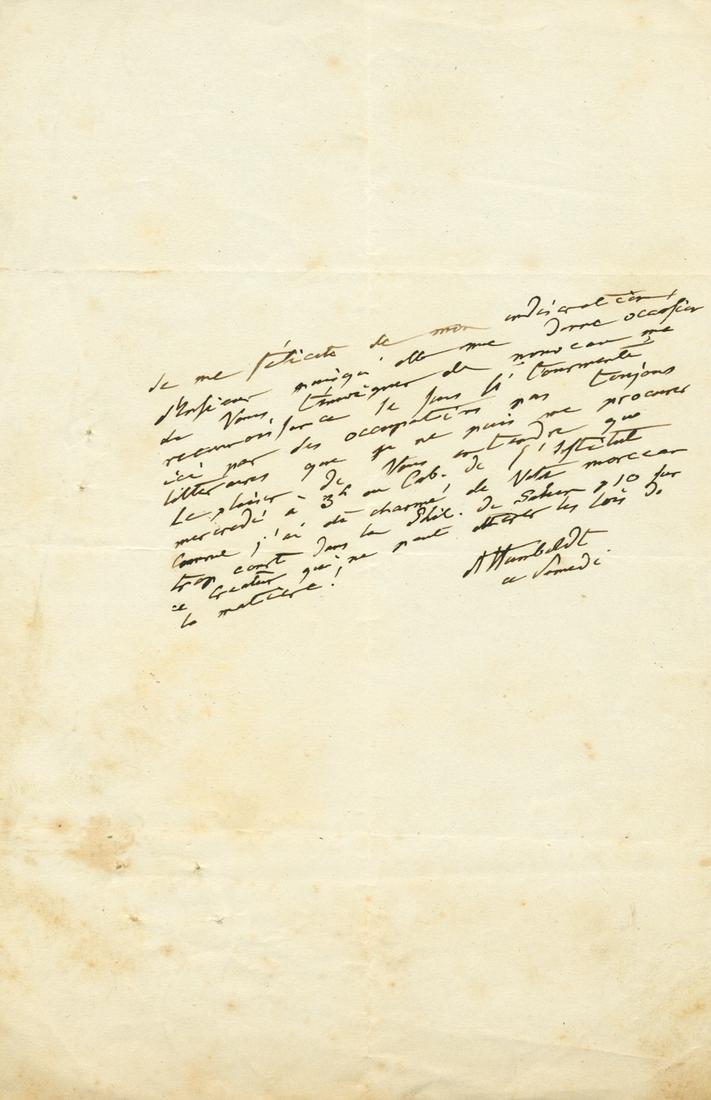 Je me félicite de mon indiscrétion,
Monsieur puisqu'elle me donne occasion
de Vous témoigner de nouveau ma
reconnoissance. Je suis si tourmenté
ici par des occupations pas toujours
littéraires que je ne puis me procurer
Le plaisir de Vous entendre que
mercredi à 3h au Cab. de l'Institut
Comme j'ai été charmé de Votre morceau
trop court dans la Phil. de p 10 sur
ce Createur qui ne peut altérer les lois de
la matière!
AHumboldt
ce Samedi